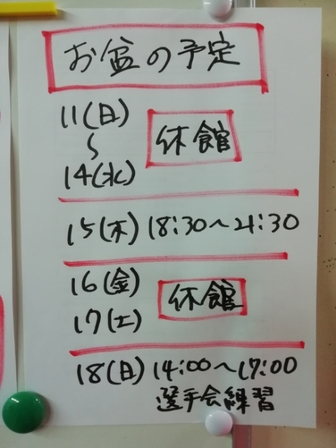 お盆の予定
11(日)
〜
14(水)
休館
15(木) 18:30〜21:30
16(金)
17(土)
休館
18(日) 14:00〜17:00
選手会練習